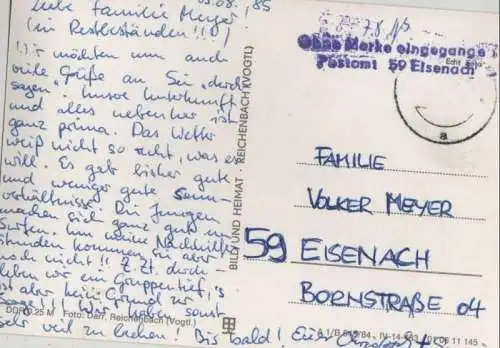 03.08.'85
Liebe Familie Meyer!
(in Restbeständen!!!)
Wir möchten nun auch
viele Grüße an Sie,
sagen. Unsere Unterkunft
und alles nebenher ist
ganz prima. Das Wetter
weiß nicht so recht, was es
will. Es gab bisher gute
und weniger gute
verhältnisse. Die Jungen
machen sich ganz gut
Surfen.
stunden kommen sie aber
noch nicht!! Z.Zt. durch-
leben wir ein Gruppentief,
ist aber kein Grund zur
Wir haben sonst
sehr viel zu lachen! Bis bald! Eure
DDR 0.25 M Foto: Darr, Reichenbach (Vogtl.)
BILD UND HEIMAT · REICHENBACH (VOGTL)
Ohne Marke eingegange
Postamt 59 Eisenach
Echt Foto
a
FAMILIE
VOLKER MEYER
59 EISENACH
BORNSTRAßE 04
IV-14-483 01 06 11 145